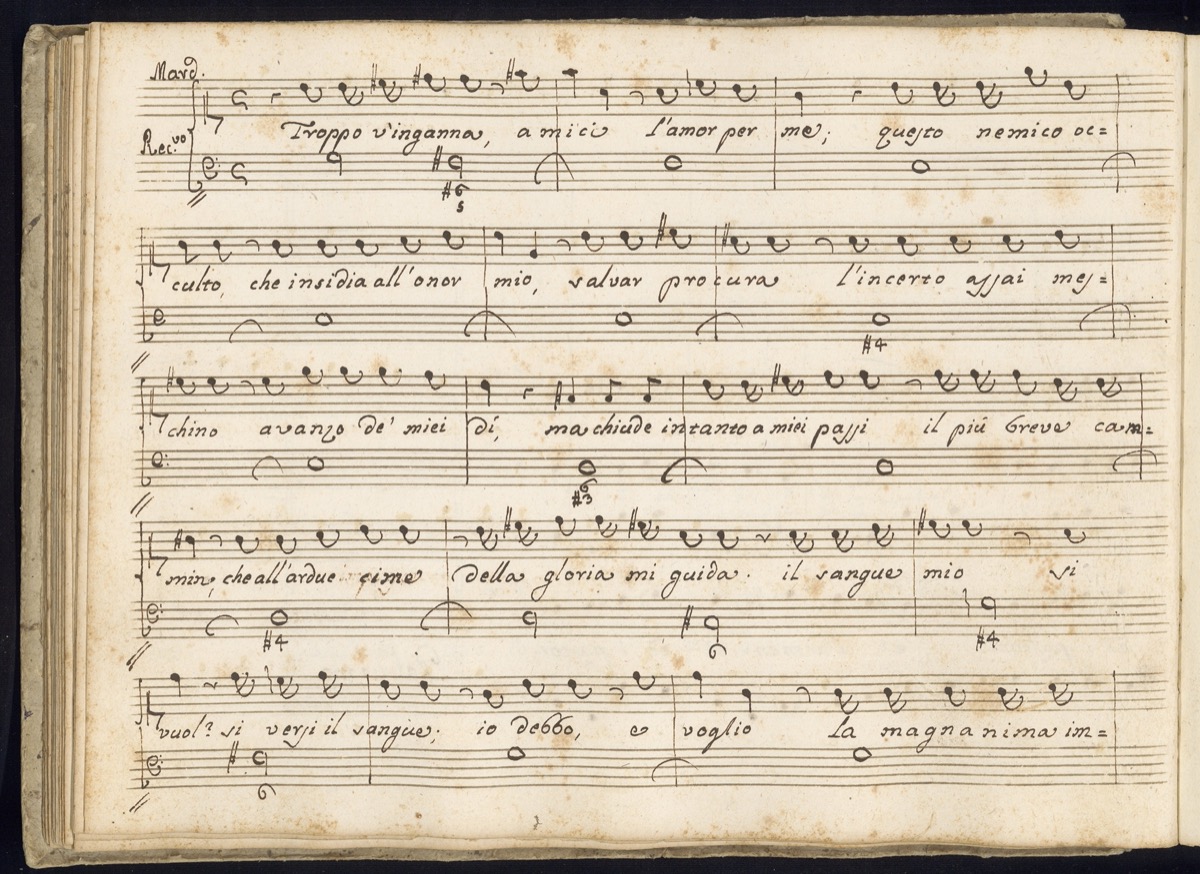 Mard.
Troppo v'inganna, amici l'amor per me; questo nemico oc=
Rec.vo
#6
5
culto, che insidia all'onor mio, salvar procura l'incerto assai mes=
#4
chino avanzo de' miei dí, ma chiude intanto a miei passi il più breve cam=
#3
min, che all'ardue cime della gloria mi guida. il sangue mio si
#4 6 #4
vuol? si versi il sangue; io debbo, e voglio la magnanima im=
6